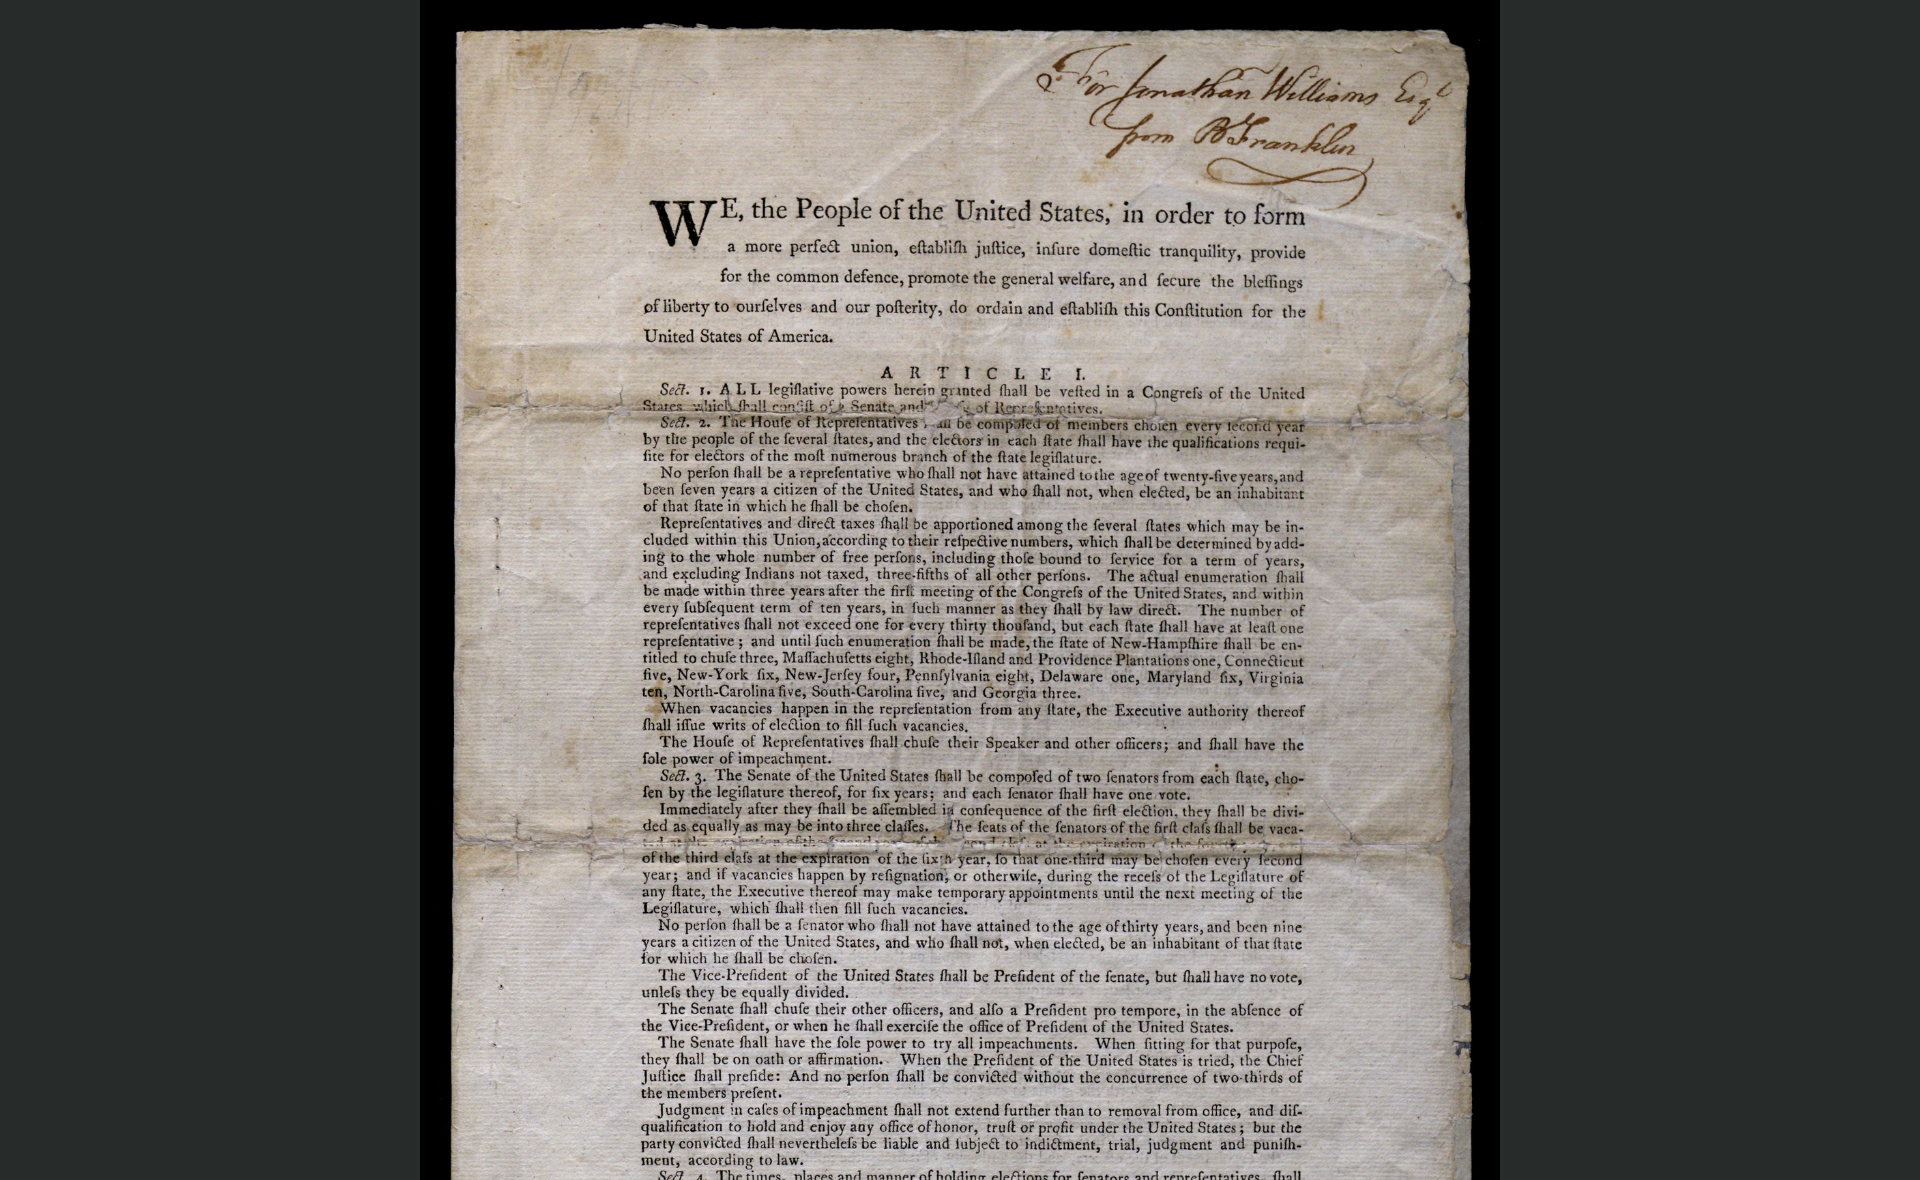 For Jonathan Williams Esqʳ
from B Franklin
WE, the People of the United States, in order to form
a more perfect union, eſtabliſh juſtice, inſure domeſtic tranquility, provide
for the common defence, promote the general welfare, and ſecure the bleſſings
of liberty to ourſelves and our poſterity, do ordain and eſtabliſh this Conſtitution for the
United States of America.
ARTICLE I.
Sect. 1. ALL legiſlative powers herein granted ſhall be veſted in a Congreſs of the United
States which ſhall conſiſt of a Senate and of Repreſentatives.
Sect. 2. The Houſe of Repreſentatives ſhall be compoſed of members choſen every ſecond year
by the people of the ſeveral ſtates, and the electors in each ſtate ſhall have the qualifications requi-
ſite for electors of the moſt numerous branch of the ſtate legiſlature.
No perſon ſhall be a repreſentative who ſhall not have attained to the age of twenty-five years, and
been ſeven years a citizen of the United States, and who ſhall not, when elected, be an inhabitant
of that ſtate in which he ſhall be choſen.
Repreſentatives and direct taxes ſhall be apportioned among the ſeveral ſtates which may be in-
cluded within this Union, according to their reſpective numbers, which ſhall be determined by add-
ing to the whole number of free perſons, including thoſe bound to ſervice for a term of years,
and excluding Indians not taxed, three-fifths of all other perſons. The actual enumeration ſhall
be made within three years after the firſt meeting of the Congreſs of the United States, and within
every ſubſequent term of ten years, in ſuch manner as they ſhall by law direct. The number of
repreſentatives ſhall not exceed one for every thirty thouſand, but each ſtate ſhall have at leaſt one
repreſentative ; and until ſuch enumeration ſhall be made, the ſtate of New-Hampſhire ſhall be en-
titled to chuſe three, Maſſachuſetts eight, Rhode-Iſland and Providence Plantations one, Connecticut
five, New-York ſix, New-Jerſey four, Pennſylvania eight, Delaware one, Maryland ſix, Virginia
ten, North-Carolina five, South-Carolina five, and Georgia three.
When vacancies happen in the repreſentation from any ſtate, the Executive authority thereof
ſhall iſſue writs of election to fill ſuch vacancies.
The Houſe of Repreſentatives ſhall chuſe their Speaker and other officers; and ſhall have the
ſole power of impeachment.
Sect. 3. The Senate of the United States ſhall be compoſed of two ſenators from each ſtate, cho-
ſen by the legiſlature thereof, for ſix years; and each ſenator ſhall have one vote.
Immediately after they ſhall be aſſembled in conſequence of the firſt election, they ſhall be divi-
ded as equally as may be into three claſſes. The ſeats of the ſenators of the firſt claſs ſhall be vaca-
expiration
of the third claſs at the expiration of the ſixth year, ſo that one-third may be choſen every ſecond
year; and if vacancies happen by reſignation, or otherwiſe, during the receſs of the Legiſlature of
any ſtate, the Executive thereof may make temporary appointments until the next meeting of the
Legiſlature, which ſhall then fill ſuch vacancies.
No perſon ſhall be a ſenator who ſhall not have attained to the age of thirty years, and been nine
years a citizen of the United States, and who ſhall not, when elected, be an inhabitant of that ſtate
for which he ſhall be choſen.
The Vice-Preſident of the United States ſhall be Preſident of the ſenate, but ſhall have no vote,
unleſs they be equally divided.
The Senate ſhall chuſe their other officers, and alſo a Preſident pro tempore, in the abſence of
the Vice-Preſident, or when he ſhall exerciſe the office of Preſident of the United States.
The Senate ſhall have the ſole power to try all impeachments. When ſitting for that purpoſe,
they ſhall be on oath or affirmation. When the Preſident of the United States is tried, the Chief
Juſtice ſhall preſide: And no perſon ſhall be convicted without the concurrence of two-thirds of
the members preſent.
Judgment in caſes of impeachment ſhall not extend further than to removal from office, and diſ-
qualification to hold and enjoy any office of honor, truſt or profit under the United States ; but the
party convicted ſhall nevertheleſs be liable and ſubject to indictment, trial, judgment and puniſh-
ment, according to law.
Sect. 4. The times, places and manner of holding elections for ſenators and repreſentatives, ſhall